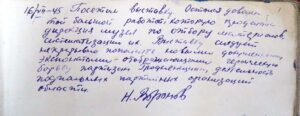 16/VII-45 Посетил выставку. Остался доволен
той большой работой, которую проделала
дирекция музея по отбору материалов,
систематизации их. Выставку следует
непрерывно пополнять новыми документами,
экспонатами - отображающими героическую
борьбу партизан, деятельность
подпольных партийных организаций
области.